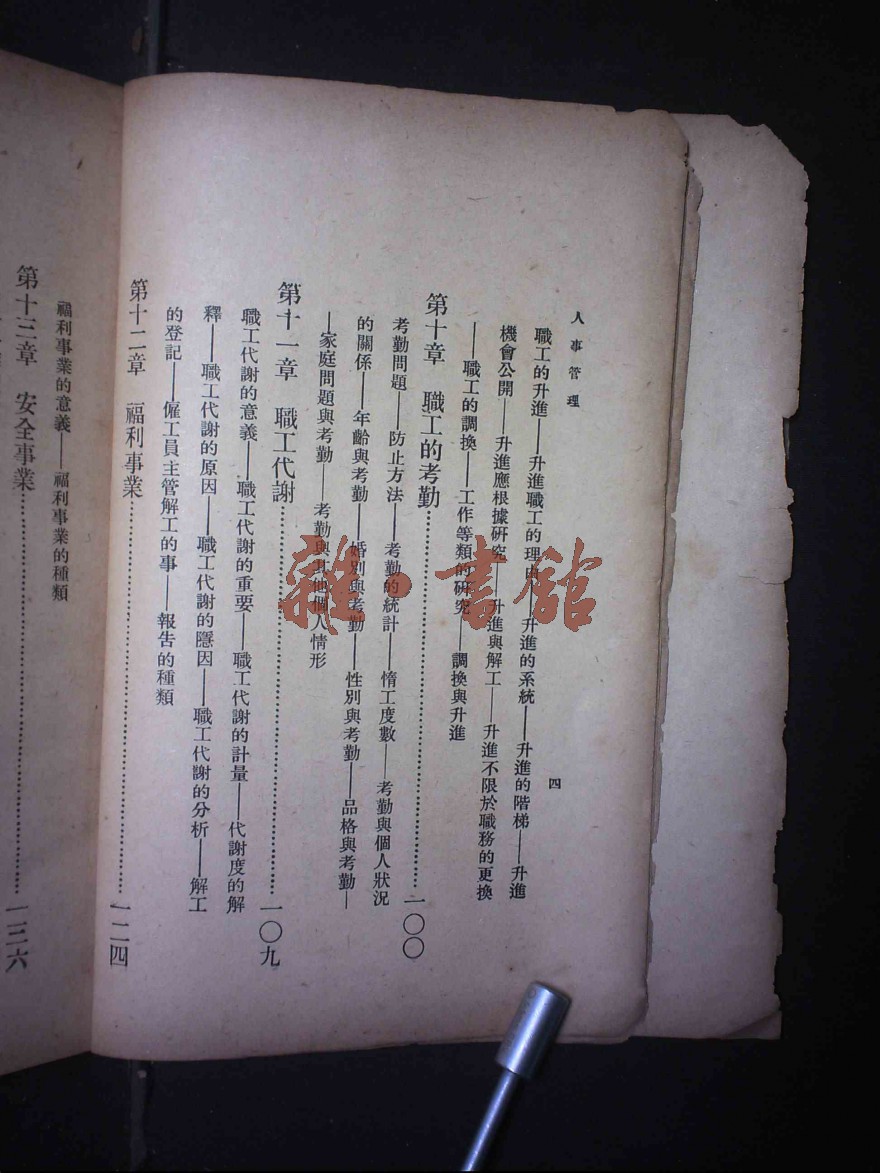 人事管理
四
職工的升進——升進職工的理由——升進的系統——升進的階梯——升進
機會公開——升進應根據研究——升進與解工——升進不限於職務的更換
——職工的調換——工作等類的研究——調換與升進
第十章　職工的考勤…………一〇〇
考勤問題——防止方法——考勤的統計——惰工度數——考勤與個人狀況
的關係——年齡與考勤——婚別與考勤——性別與考勤——品格與考勤—
—家庭問題與考勤——考勤與其他個人情形
第十一章　職工代謝…………一〇九
職工代謝的意義——職工代謝的重要——職工代謝的計量——代謝度的解
釋——職工代謝的原因——職工代謝的隱因——職工代謝的分析——解工
的登記——僱工員主管解工的事——報告的種類
第十二章　福利事業…………一二四
福利事業的意義——福利事業的種類
第十三章　安全事業…………一三六
雜·書館